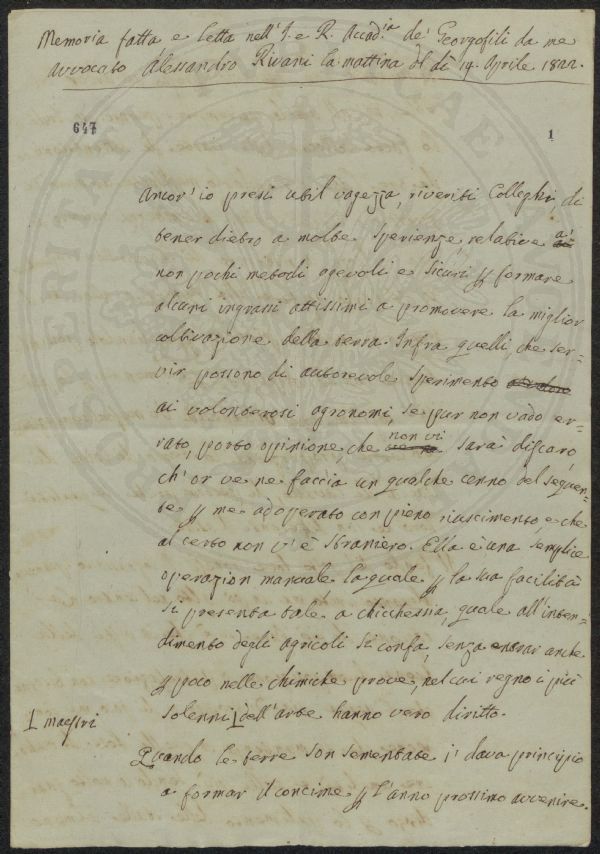 Memoria fatta e letta nell'I. e R. Accad.ia de' Georgofili da me
avvocato Alessandro Rivani la mattina del dì 14. Aprile 1822.
647
1
Ancor' io presi util vagezza, riveriti Colleghi di
tener dietro a molte sperienze, relative a'
non pochi metodi agevoli e sicuri p formare
alcuni ingrassi attissimi a promovere la miglior
coltivazione della terra. Infra quelli, che ser=
vir possono di autorevole sperimento
ai volonterosi agronomi, se pur non vado er=
rato, porto opinione, che non vi sarà discaro,
ch' or ve ne faccia un qualche cenno del seguen=
te p me adoperato con pieno riuscimento, e che
al certo non v' è straniero. Ella è una semplice
operazion manuale, la quale p la sua facilità
si presenta tale a chicchessia, quale all'inten=
dimento degli agricoli si confà, senza entrar anche
p poco nelle chimiche prove, nel cui regno i più
solenni L dell'arte hanno vero diritto.
L maestri
Quando le terre son sementate i' dava principio
a formar il concime p l'anno prossimo avvenire.